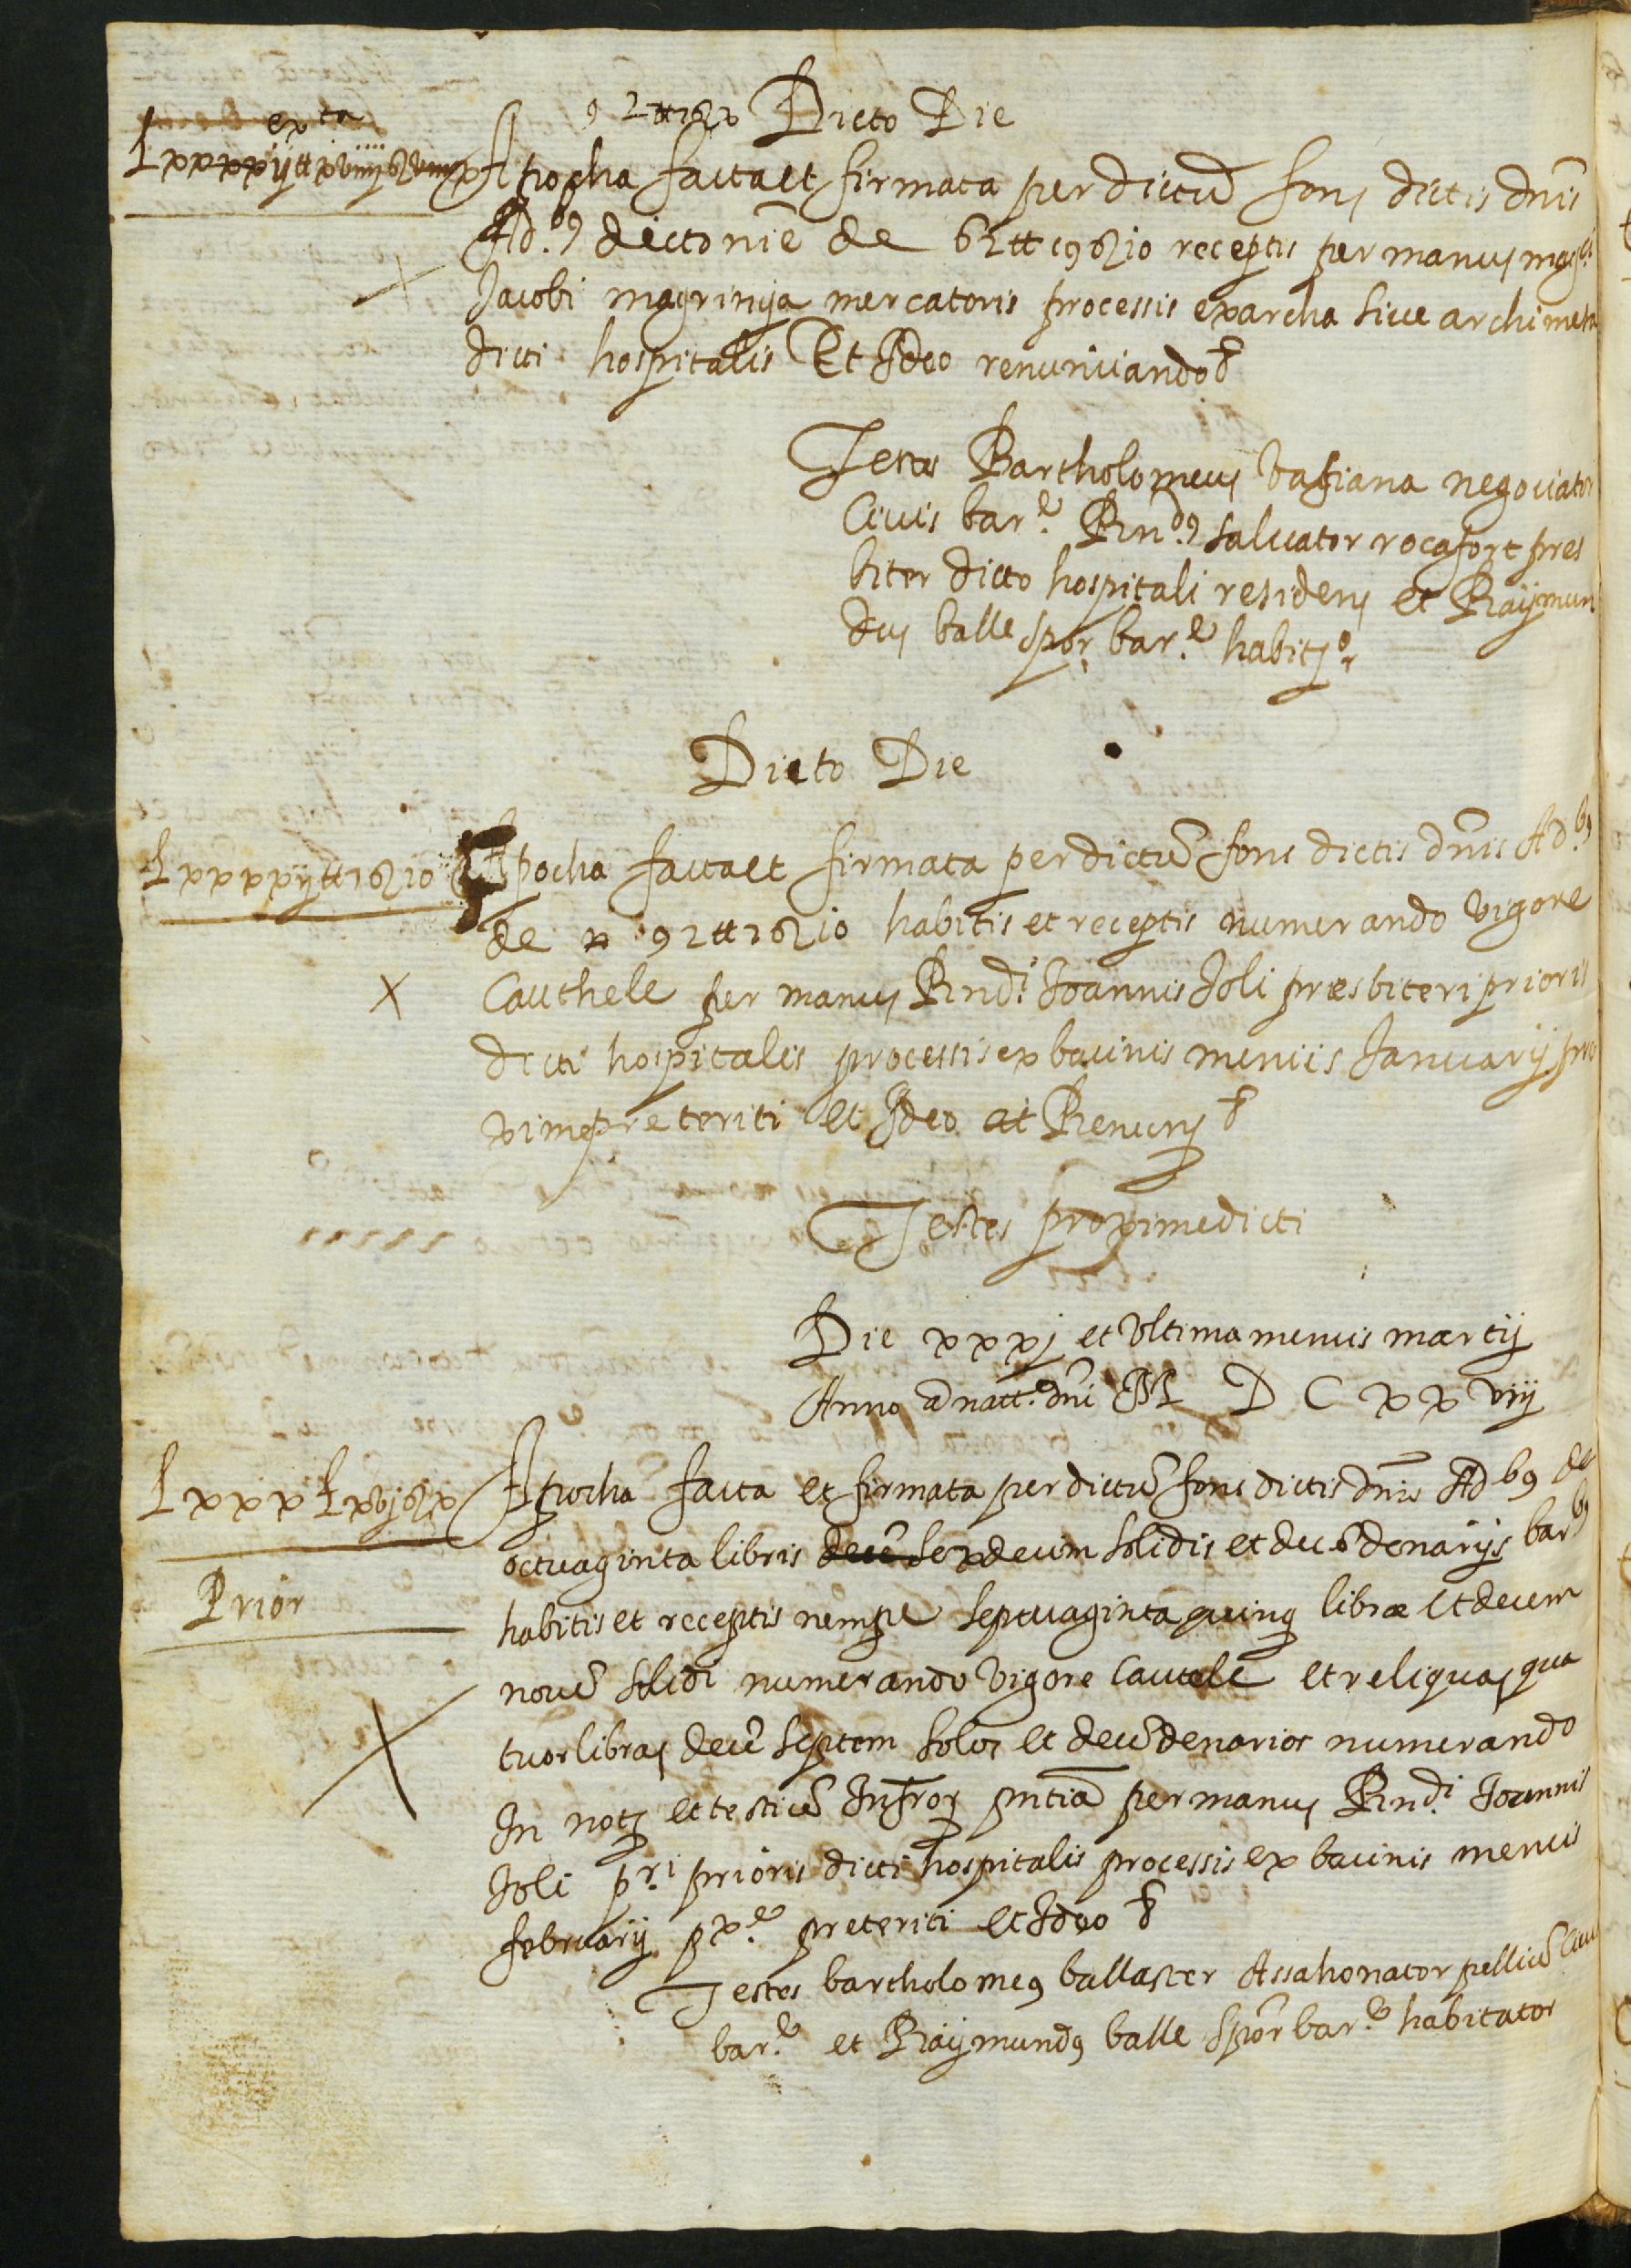 Dicto Die
Apocha facta et firmata per dictū fons dictis dnis
Ad.b9 dicto nie de 62 tt 19 ß 10 receptis per manus
Jacobi magrinya mercatoris processis ex archa sive archimesa
dicti hospitalis Et Ideo renunciando
Testes Bartholomeus negociator
Civis bar.e Rnd.9 salvator rocafort pres
biter dicto hospitali residens et Raymun
dus balle spōr bar.e habitor
Dicto Die
Apocha facta et firmata per dictū fons dictis dnis Ad.b9
de 92 tt 1 ß 10 habitis et receptis numerando vigore
Cauthele per manus Rndi Joannis Joli præsbiteri prioris
dicti hospitalis processis ex bacinis mencis Januarij pro
xime preteriti et Ideo et Renuns
Testes proximedicti
Die xxxj et Vltima mencis martij
Anno a natt.e dni M D C xx viij
Apocha facta et firmata per dictū fons dictis dnis Ad b9 de
octuaginta libris decē sexdecim solidis et decē denarijs bar b9
habitis et receptis nempe septuaginta quinq libræ et decem
novē solidi numerando vigore Cautelē et reliquas qua
tuor libras decē septem solos et decē denarios numerando
In notj et testiū Infror pntia per manus Rnd.i Joannis
Joli pr.i prioris dicti hospitalis processis ex bacinis mencis
februarij px.e preteriti et Ideo
Testes bartholomeg ballaster Assahonator pelliū Civis
bar.e et Raymundg balle spōr bar.e habitator
Prior